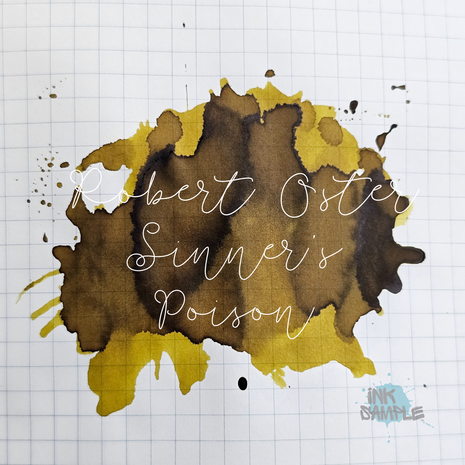 Robert Oster
Sinner's
Poison
INK
SAMPLE